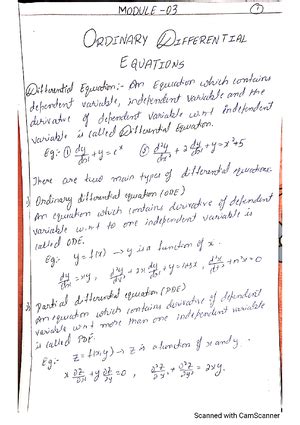 MODULE-03
1
ORDINARY DIFFERENTIAL
EQUATIONS
Differential Equation:- An Equation which contains
dependent variable, independent variable and the
derivative of dependent variable w.r.t independent
variable is called Differential Equation.
Eg:- ① dy/dx + y = e^x ② d²y/dx² + 2 dy/dx + y = x² + 5
There are two main types of differential equations.
1) Ordinary differential equation (ODE)
An equation which contains derivative of dependent
variable w.r.t to one independent variable is
called ODE.
Eg:- y = f(x) → y is a function of x.
dy/dx = xy, d²y/dx² + 2x dy/dx + y = cosx, d²x/dt² + n²x = 0
2) Partial differential equation (PDE)
An equation which contains derivative of dependent
variable w.r.t more than one independent variable
is called PDE.
Eg:- Z = f(x,y) → Z is a function of x and y.
x ∂Z/∂x + y ∂Z/∂y = 0, ∂²Z/∂x² + ∂²Z/∂y² = 2xy.
Scanned with CamScanner